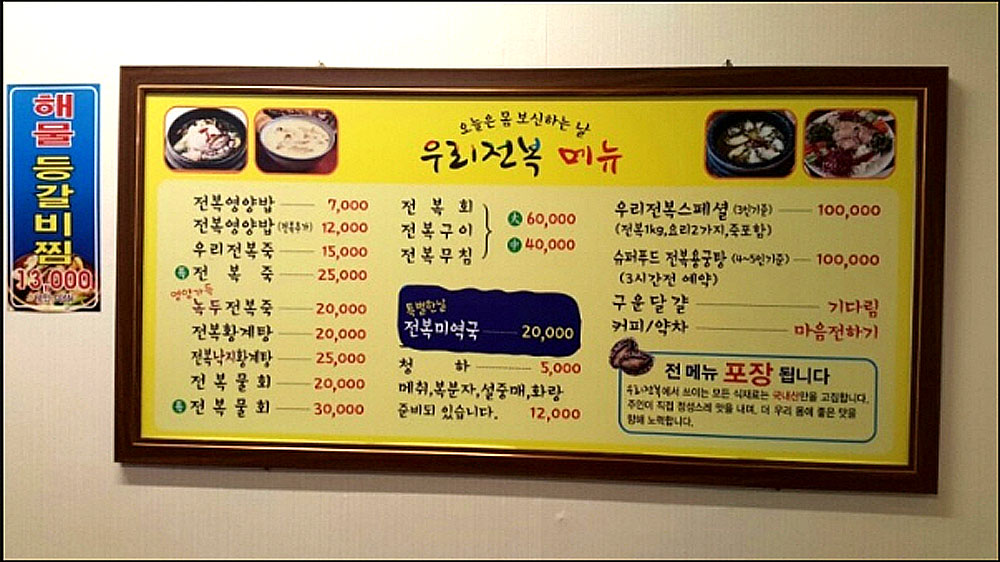 해물 등갈비찜
13,000
오늘은 몸 보신하는 날
우리전복 메뉴
전복영양밥 7,000
전복영양밥 (전복추가) 12,000
우리전복죽 15,000
특 전복죽 25,000
영양가득
녹두전복죽 20,000
전복황계탕 20,000
전복낙지황계탕 25,000
전복물회 20,000
특 전복물회 30,000
전복회
전복구이
전복무침
大 60,000
中 40,000
특별한날
전복미역국 20,000
청하 5,000
메취,복분자,설중매,화랑
준비되 있습니다. 12,000
우리전복스페셜 (3인기준) 100,000
(전복1kg,요리2가지,죽포함)
슈퍼푸드 전복용궁탕 (4~5인기준) 100,000
(3시간전 예약)
구운달걀 기다림
커피/약차 마음전하기
전 메뉴 포장 됩니다
우리전복에서 쓰이는 모든 식재료는 국내산만을 고집합니다.
주인이 직접 정성스레 맛을 내며, 더 우리 몸에 좋은 맛을
향해 노력합니다.